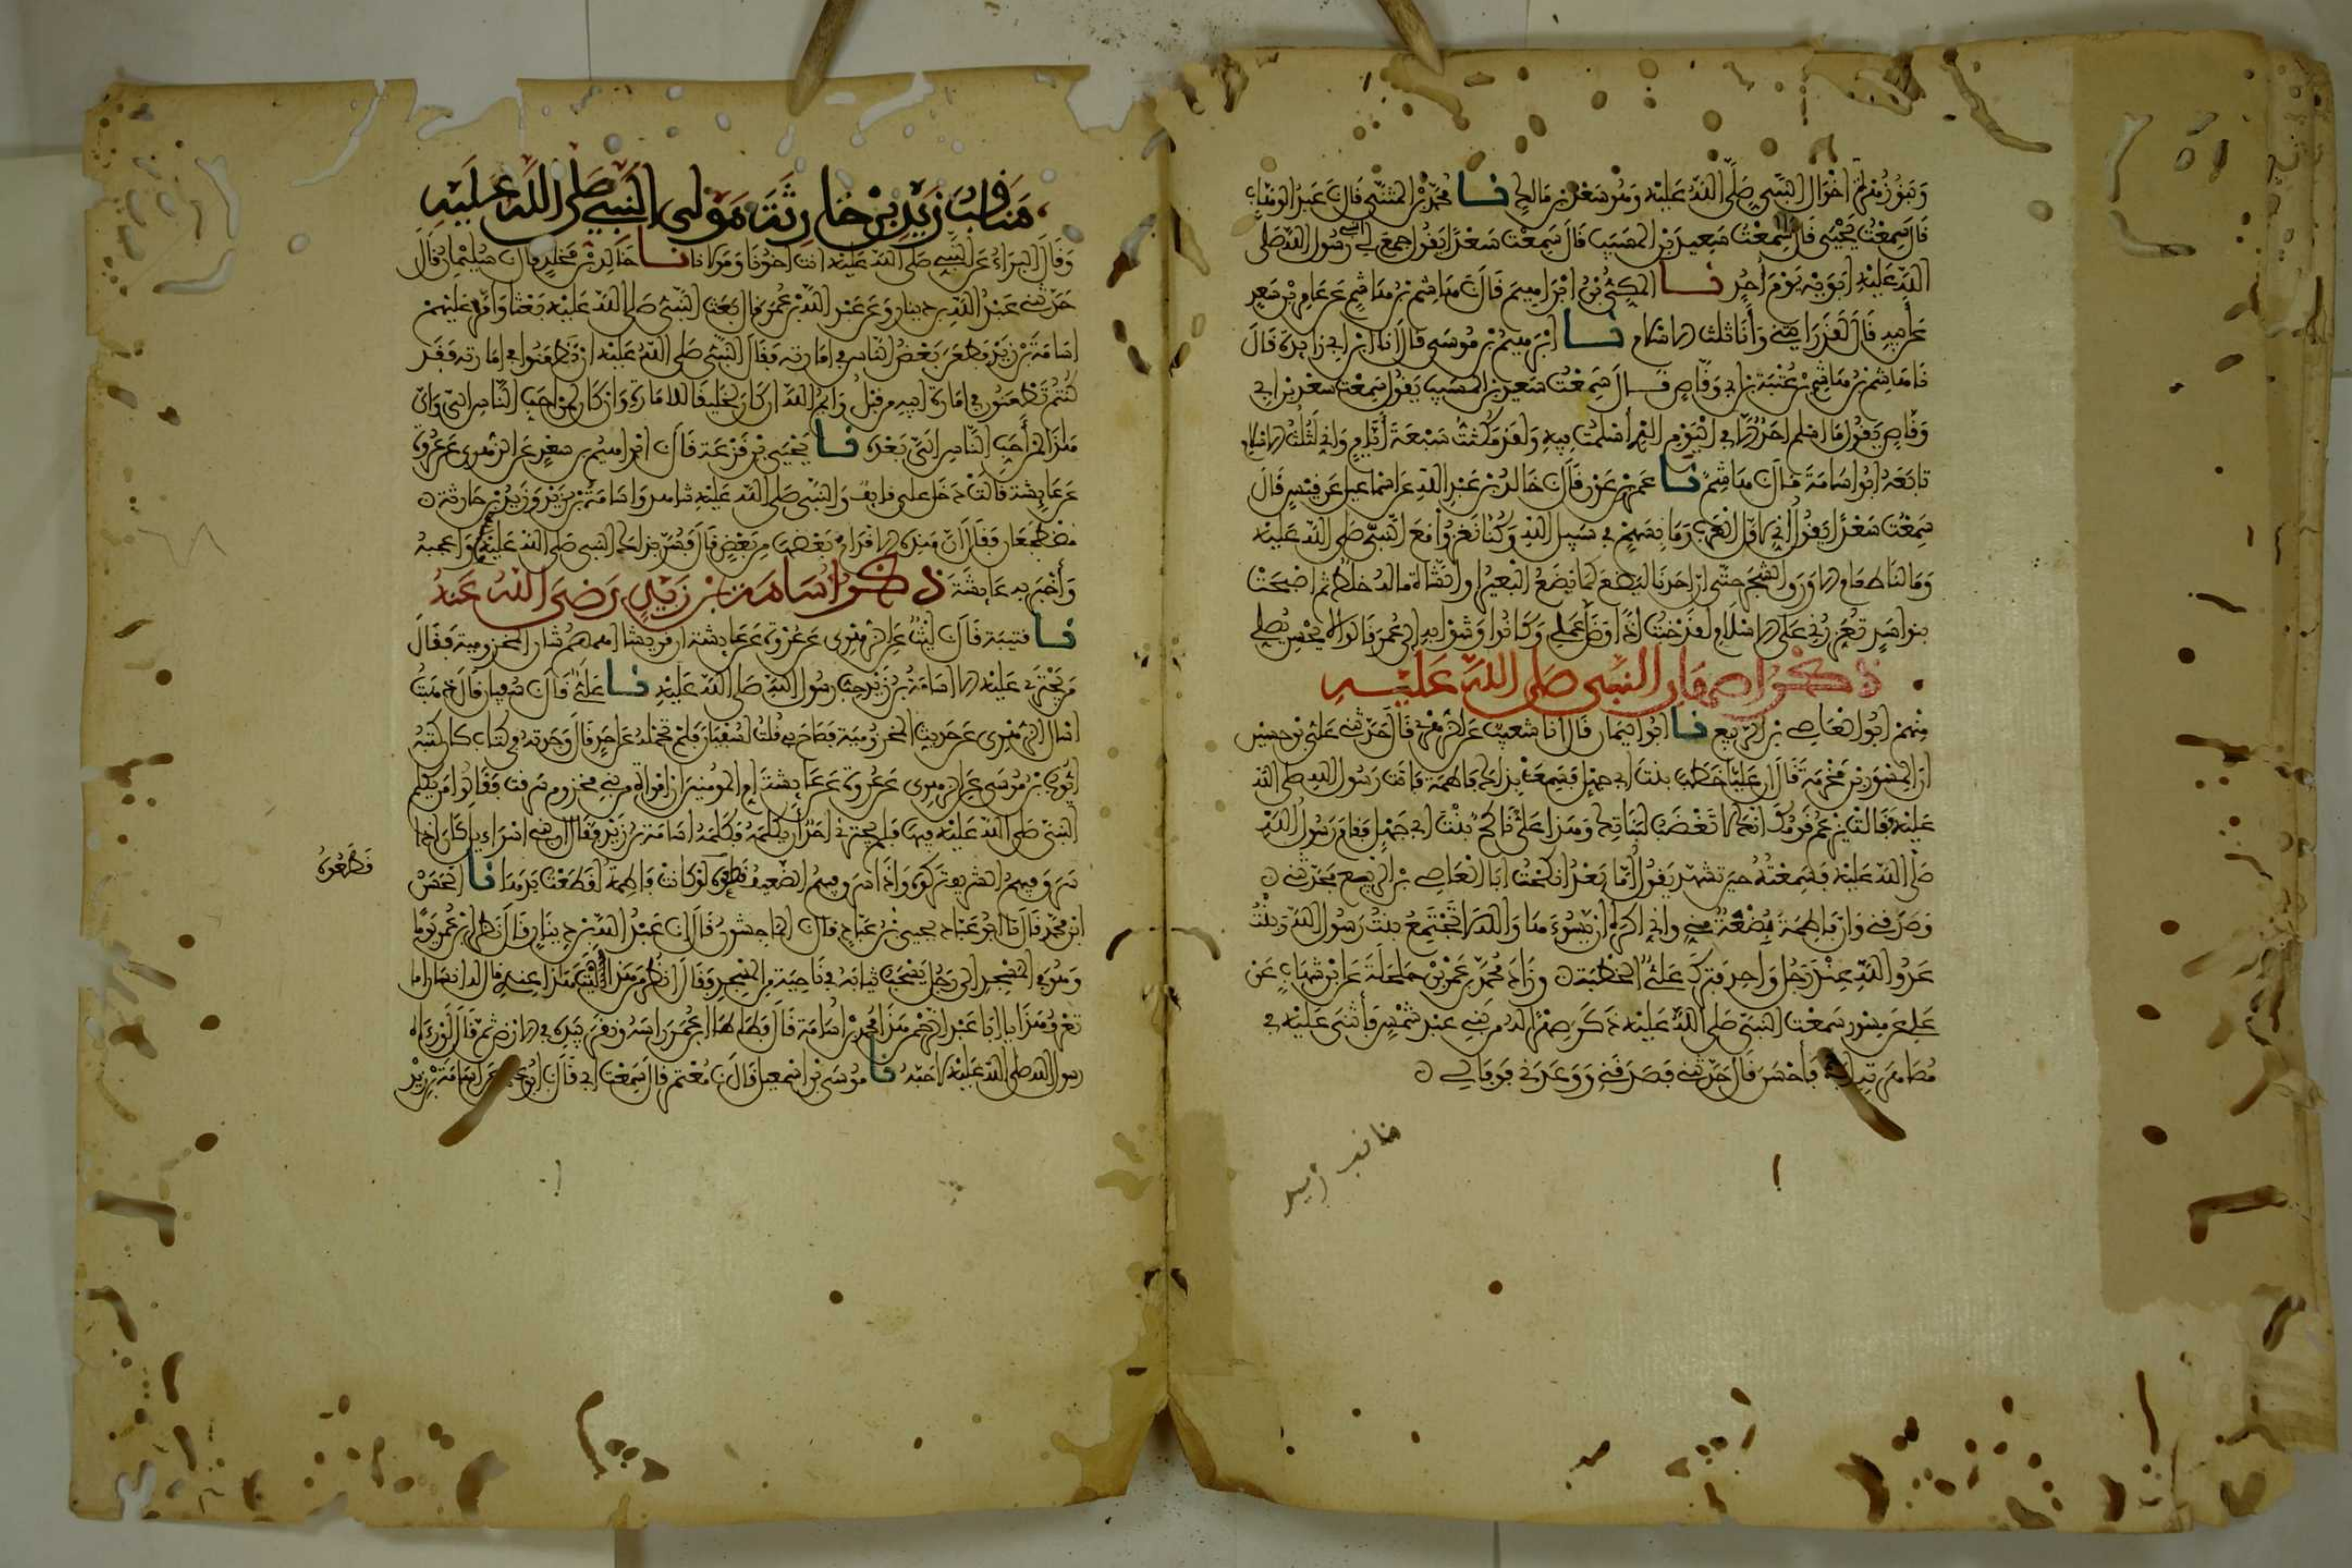 وَبَنُو زُهْرَةَ أخْوَالُ النَّبِي صَلَّى اللَّهُ عَلَيْهِ وَهُوَ سَعْدُ بن مَالِكٍ نا مُحَمَّدُ بْنُ الْمُثَنَّى قَالَ نَا عَبْدُ الْوَهَّابِ
قَالَ سَمِعْتُ يَحْيَى قَالَ سَمِعْتُ سَعِيدَ بْنَ الْمُسَيَّبِ قَالَ سَمِعْتُ سَعْدًا يَقُولُ جمع لِي رسُولُ اللَّهِ صَلَّى
اللَّهُ عَلَيْهِ أَبَوَيْهِ يَوْمَ أُحُدٍ نا الْمَكِّيُّ بْنُ إبْرَاهِيمَ قَالَ نَا هَاشِمُ بْنُ هَاشِمٍ عَنْ عَامِرِ بْنِ سَعْدٍ
عَنْ أَبِيهِ قَالَ لَقَدْ رَأَيْتُنِي وَأَنَا ثلث الاسْلَامِ نا إبْرَهِيمُ بْنُ مُوسَى قَالَ أنا ابْنُ أَبِي زَائِدَةَ قَالَ
نَا هَاشِمُ بْنُ هَاشِمِ بْنِ عُتْبَةَ بْنِ أَبِي وَقَّاصٍ قَالَ سَمِعْتُ سَعِيدَ بْنَ الْمُسَيَّبِ يَقُولُ سَمِعْتُ سَعْدَ بْنَ أَبِي
وَقَّاصٍ يَقُولُ مَا أَسْلَمَ أَحَدٌ إِلَّا فِي الْيَوْمِ الَّذِي أَسْلَمْتُ فِيهِ وَلَقَدْ مَكُثْتُ سَبْعَةَ أَيَّامٍ وَإِنِّي لَثُلُثُ الاسْلَامِ
تَابَعَهُ أَبُو أُسَامَةَ قَالَ نَا هَاشِمٌ نا عَمْرُو بْنُ عَوْنٍ قَالَ نَا خَالِدُ بْنُ عَبْدِ اللَّهِ عَنْ إسْمَاعِيلَ عَنْ قَيْسٍ قَالَ
سَمِعْتُ سَعْدًا يَقُولُ إِنِّي لَأَوَّلُ الْعَرَبِ رَمَى بِسَهْمٍ فِي سَبِيلِ اللَّهِ وَكُنَّا نَغْزُوا مَعَ النَّبِيِّ صَلَّى اللَّهُ عَلَيْهِ
وَمَا لَنَا طعام إلا وَرَقُ الشَّجَرِ حَتَّى إِنَّ أَحَدَنَا لَيَضَعُ كَمَا يَضَعُ الْبَعِيرُ أَوِ الشَّاةُ مَا لَهُ خِلْطٌ ثُمَّ أصْبَحَتْ
بنو أسَدٍ تُعَزِّرُنِي عَلَى الاسْلَامِ لَقَدْ خِبْتُ إِذًا وَضَلَّ عَمَلِي وَكَانُوا وَشَوْا بِهِ إِلَى عُمَرَ قَالُوا لَا يُحْسِنُ يُصَلِّي
ذكْرُ أصهار النَّبِيِّ صَلَّى اللَّهُ عَلَيْهِ
مِنْهُمْ أَبُو الْعَاصِ بْنُ الرَّبِيعِ نا أَبُو الْيَمَانِ قَالَ أنا شُعَيْبٌ عَنِ الزُّهْرِيِّ قَالَ حَدَّثَنِي عَلِيُّ بْنُ حُسَيْنٍ
أنَّ الْمِسْوَرَ بْنَ مَخْرَمَةَ قَالَ إنَّ عَلِيًّا خَطَبَ بِنْتَ أَبِي جَهْلٍ فَسَمِعَتْ بِذَلِكَ فَاطِمَةُ فَأَتَتْ رَسُولَ اللَّهِ صلى الله
عَلَيْهِ فَقَالَتْ يَزْعُمُ قَوْمُكَ أَنَّكَ لَا تَغْضَبُ لِبَنَاتِكَ وَهَذَا عَلِيٌّ نَاكِحٌ بِنْتَ أَبِي جَهْلٍ فَقَامَ رَسُولُ اللَّهِ
صَلَّى اللَّهُ عَلَيْهِ فَسَمِعْتُهُ حِينَ تَشَهَّدَ يَقُولُ أَمَّا بَعْدُ أَنْكَحْتُ أَبَا الْعَاصِ بْنَ الرَّبِيعِ فَحَدَّثَنِي
وَصَدَقَنِي وَإِنَّ فَاطِمَةَ بَضْعَةٌ مِنِّي وَإِنِّي أَكْرَهُ أَنْ يَسُوءَهَا وَاللَّهِ لَا تَجْتَمِعُ بِنْتُ رَسُولِ اللَّهِ وَبِنْتُ
عَدُوِّ اللَّهِ عِنْدَ رَجُلٍ وَاحِدٍ فَتَرَكَ عَلِيٌّ الْخِطْبَةَ وَزَادَ مُحَمَّدُ بْنُ عَمْرِو بْنِ حَلْحَلَةَ عَنِ ابْنِ شِهَابٍ عَنْ
عَلِيٍّ عَنْ مِسْوَرٍ سَمِعْتُ النَّبِيَّ صَلَّى اللَّهُ عَلَيْهِ ذَكَرَ صِهْرًا لَهُ مِنْ بَنِي عَبْدِ شَمْسٍ فَأَثْنَى عَلَيْهِ فِي
مُصَاهَرَتِهِ إياه فَأَحْسَنَ قَالَ حَدَّثَنِي فَصَدَقَنِي وَوَعَدَنِي فَوَفَى لِي
مناقب زيد
مَنَاقِبُ زَيْدِ بْنِ حَارِثَةَ مَوْلَى النَّبِيِّ صَلَّى اللَّهُ عَلَيْهِ
وَقَالَ الْبَرَاءُ عَنِ النَّبِيِّ صَلَّى اللَّهُ عَلَيْهِ أنت أَخُونَا وَمَوْلَانَا نا خَالِدُ بْنُ مَخْلَدٍ قال نا سُلَيْمَانُ قَالَ
حَدَّثَنِي عَبْدُ اللَّهِ بْنُ دِينَارٍ عَنْ عَبْدِ اللَّهِ بْنِ عُمَرَ قَالَ بَعَثَ النَّبِيُّ صَلَّى اللَّهُ عَلَيْهِ بَعْثًا وَأَمَّرَ عَلَيْهِمْ
أُسَامَةَ بْنَ زَيْدٍ فَطَعَنَ بَعْضُ النَّاسِ فِي إِمَارَتِهِ فَقَالَ النَّبِيُّ صَلَّى اللَّهُ عَلَيْهِ إن تَطْعَنُوا فِي إِمَارَتِهِ فَقَدْ
كُنْتُمْ تَطْعَنُونَ فِي إِمَارَةِ أَبِيهِ مِنْ قَبْلُ وَايْمُ اللَّهِ إِنْ كَانَ لَخَلِيقًا لِلْإِمَارَةِ وَإِنْ كَانَ لَمِنْ أَحَبِّ النَّاسِ إِلَيَّ وَإِنَّ
هَذَا لَمِنْ أَحَبِّ النَّاسِ إِلَيَّ بَعْدَهُ نا يَحْيَى بْنُ قَزَعَةَ قَالَ نا إبْرَاهِيمُ بن سعْدٍ عَنِ الزُّهْرِيِّ عَنْ عُرْوَةَ
عَنْ عَائِشَةَ قَالَتْ دَخَلَ عَلَيَّ قَائِفٌ وَالنَّبِيُّ صَلَّى اللَّهُ عَلَيْهِ شَاهِدٌ وَأُسَامَةُ بْنُ زَيْدٍ وَزَيْدُ بْنُ حَارِثَةَ
مُضْطَجِعَانِ فَقَالَ إِنَّ هَذِهِ الْأَقْدَامَ بَعْضُهَا مِنْ بَعْضٍ قَالَ فَسُرَّ بِذَلِكَ النَّبِيُّ صَلَّى اللَّهُ عَلَيْهِ وَأَعْجَبَهُ
وَأَخْبَرَ بِهِ عَائِشَةَ ذكْرُ أُسَامَةَ بْنِ زَيْدٍ رَضِيَ اللَّهُ عَنْهُ
نا قُتَيْبَةُ قَالَ نَا لَيْثٌ عَنِ الزُّهْرِيِّ عَنْ عُرْوَةَ عَنْ عَائِشَةَ أن قريشا أهمهم شأن المخزومية فَقَالُوا
مَنْ يَجْتَرِئُ عَلَيْهِ إلا أُسَامَةُ بْنُ زَيْدٍ حِبُّ رَسُولِ اللَّهِ صَلَّى اللَّهُ عَلَيْهِ نا عَلِيٌّ قَالَ نَا سُفْيَانُ قَالَ ذَهَبْتُ
أَسْأَلُ الزُّهْرِيَّ عَنْ حَدِيثِ الْمَخْزُومِيَّةِ فَصَاحَ بِي قُلْتُ لِسُفْيَانَ فَلَمْ تَحْمِلْهُ عَنْ أَحَدٍ قَالَ وَجَدْتُهُ فِي كِتَابٍ كَانَ كَتَبَهُ
أَيُّوبُ بْنُ مُوسَى عَنِ الزُّهْرِيِّ عَنْ عُرْوَةَ عَنْ عَائِشَةَ أم المؤمنين أَنَّ امْرَأَةً مِنْ بَنِي مَخْزُومٍ سَرَقَتْ فَقَالُوا مَنْ يُكَلِّمُ
النَّبِيَّ صَلَّى اللَّهُ عَلَيْهِ فِيهَا فَلَمْ يَجْتَرِئْ أَحَدٌ أَنْ يُكَلِّمَهُ فَكَلَّمَهُ أُسَامَةُ بْنُ زَيْدٍ فَقَالَ إِنَّ بَنِي إِسْرَاءِيلَ كَانَ إِذَا
سَرَقَ فِيهِمُ الشَّرِيفُ تَرَكُوهُ وَإِذَا سَرَقَ فِيهِمُ الضَّعِيفُ قطعوه لَوْ كَانَتْ فَاطِمَةُ لَقَطَعْتُ يَدَهَا نا الْحَسَنُ
فَطَعُوهُ
ابْنُ مُحَمَّدٍ قَالَ نَا أَبُو عَبَّادٍ يَحْيَى بْنُ عَبَّادٍ قَالَ نا الْمَاجِشُونُ قَالَ نا عَبْدُ اللَّهِ بْنُ دِينَارٍ قَالَ نَظَرَ ابْنُ عُمَرَ يَوْمًا
وَهُوَ فِي الْمَسْجِدِ إِلَى رَجُلٍ يَسْحَبُ ثِيَابَهُ فِي نَاحِيَةٍ مِنَ الْمَسْجِدِ فَقَالَ انْظُرْ مَنْ هَذَا لَيْتَ هَذَا عِنْدِي قال له إنسان أما
تَعْرِفُ هَذَا يَا أَبَا عَبْدِ الرَّحْمَنِ هَذَا مُحَمَّدُ بْنُ أُسَامَةَ قَالَ فَطَأْطَأَ ابْنُ عُمَرَ رَأْسَهُ وَنَقَرَ بِيَدَيْهِ فِي الأرْضِ ثُمَّ قَالَ لَوْ رَآهُ
رسول الله صلى الله عليه لَأَحَبَّهُ نا مُوسَى بْنُ إِسْمَعِيلَ قَالَ نا مُعْتَمِرٌ قَالَ سَمِعْتُ أَبِي قَالَ نا أَبُو عُثْمَانَ عَنْ أُسَامَةَ بْنِ زَيْدٍ